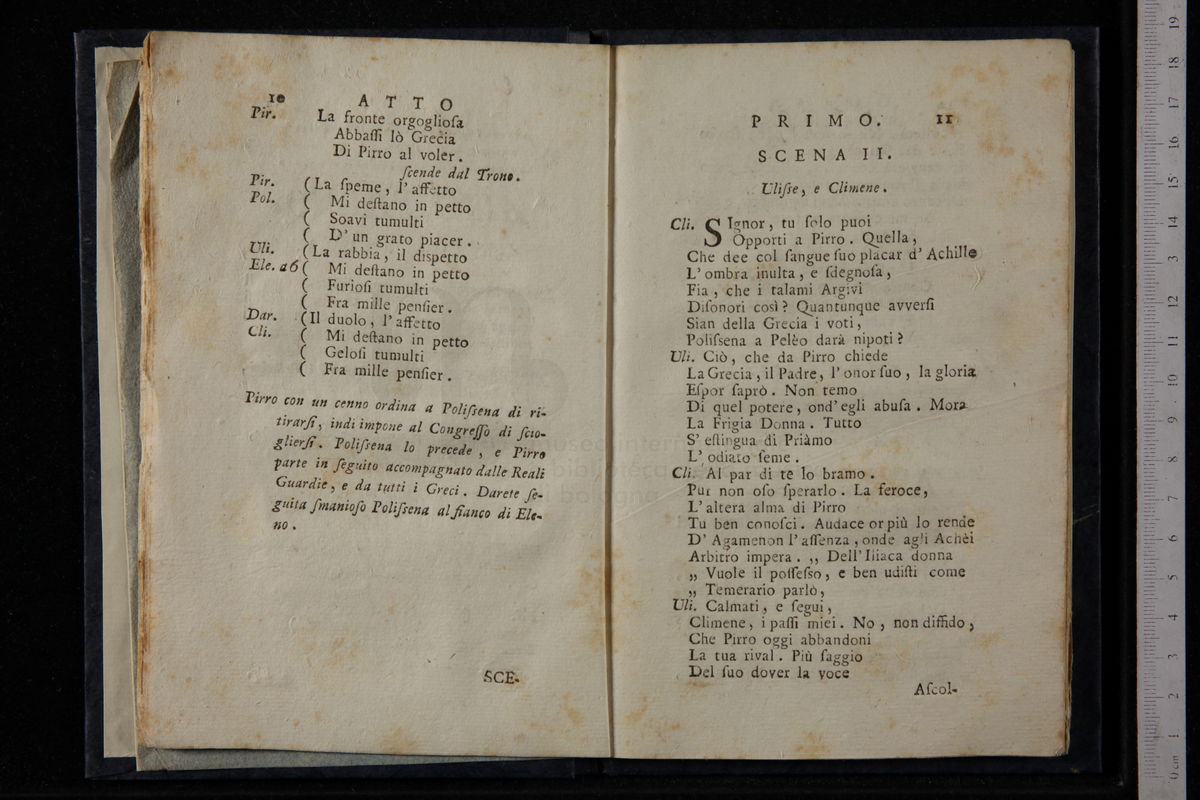 10 ATTO
Pir. La fronte orgoglioſa
Abbaſſi lò Grecia
Di Pirro al voler.
ſcende dal Trono.
Pir. (La ſpeme, l'affetto
Pol. ( Mi deſtano in petto
( Soavi tumulti
( D'un grato piacer.
Uli. (La rabbia, il diſpetto
Ele. a6 ( Mi deſtano in petto
( Furioſi tumulti
( Fra mille penſier.
Dar. (Il duolo, l'affetto
Cli. ( Mi deſtano in petto
( Geloſi tumulti
( Fra mille penſier.
Pirro con un cenno ordina a Poliſsena di ri-
tirarſi, indi impone al Congreſſo di ſcio-
glierſi. Poliſsena lo precede, e Pirro
parte in ſeguito accompagnato dalle Reali
Guardie, e da tutti i Greci. Darete ſe-
guita ſmanioſo Poliſsena al fianco di Ele-
no.
SCE-
PRIMO. 11
SCENA II.
Uliſse, e Climene.
Cli. SIgnor, tu ſolo puoi
Opporti a Pirro. Quella,
Che dee col ſangue ſuo placar d'Achille
L'ombra inulta, e ſdegnoſa,
Fia, che i talami Argivi
Diſonori così? Quantunque avverſi
Sian della Grecia i voti,
Poliſsena a Pelèo darà nipoti?
Uli. Ciò, che da Pirro chiede
La Grecia, il Padre, l'onor ſuo, la gloria
Eſpor ſaprò. Non temo
Di quel potere, ond'egli abuſa. Mora
La Frigia Donna. Tutto
S'eſtingua di Priàmo
L'odiato ſeme.
Cli. Al par di te lo bramo.
Pur non oſo ſperarlo. La feroce,
L'altera alma di Pirro
Tu ben conoſci. Audace or più lo rende
D'Agamenon l'aſſenza, onde agli Achèi
Arbitro impera. ,, Dell'Iliaca donna
,, Vuole il poſſeſso, e ben udiſti come
,, Temerario parlò,
Uli. Calmati, e ſegui,
Climene, i paſſi miei. No, non diffido,
Che Pirro oggi abbandoni
La tua rival. Più ſaggio
Del ſuo dover la voce
Aſcol-